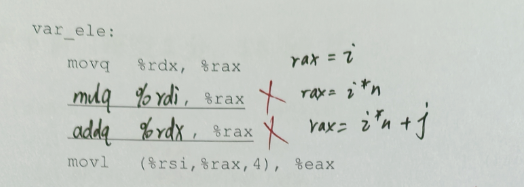 var_ele:
movq %rdx, %rax rax = i
mulq %rdi, %rax ✗ rax= i*n
addq %rdx, %rax ✗ rax= i*n + j
movl (%rsi,%rax,4), %eax